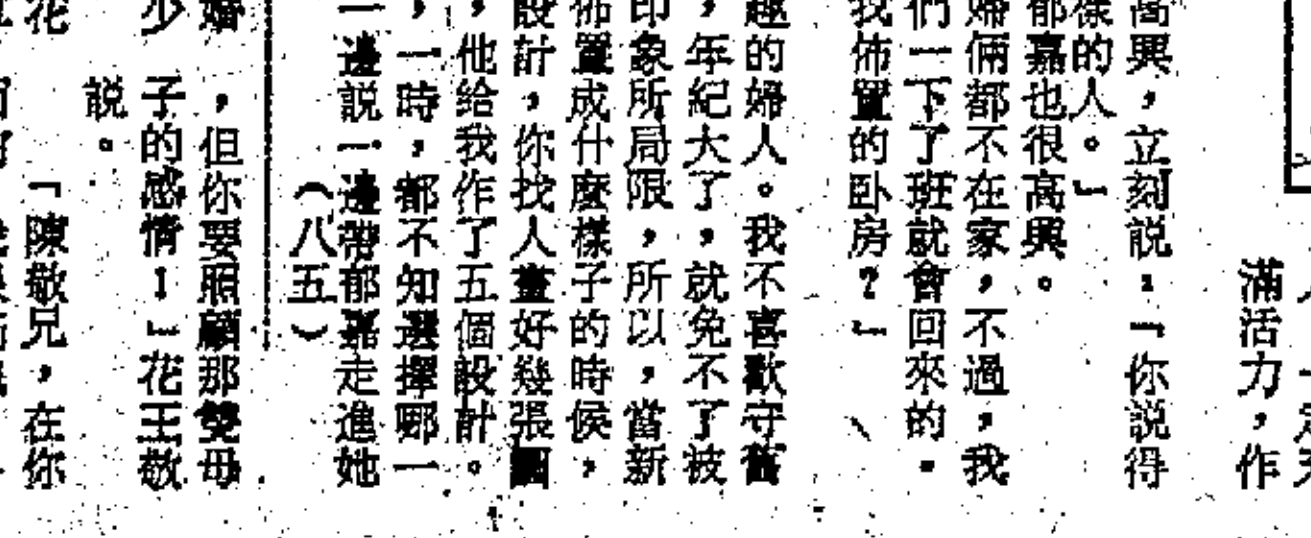 滿活力,作
高興,立刻說:「你說得
樣的人。」
郁嘉也很高興。
婦倆都不在家,不過,我
們一下了班就會回來的。
我佈置的卧房?」
趣的婦人。我不喜歡守舊
,年紀大了,就免不了被
印象所局限,所以,當新
佈置成什麼樣子的時候,
設計,你找人畫好幾張圖
,他給我作了五個設計。
,一時,都不知選擇哪一
一邊說一邊帶郁嘉走進她
(八五)
婚,但你要照顧那雙母
少子的感情!」花王敬
說。
花「陳敬兄,在你